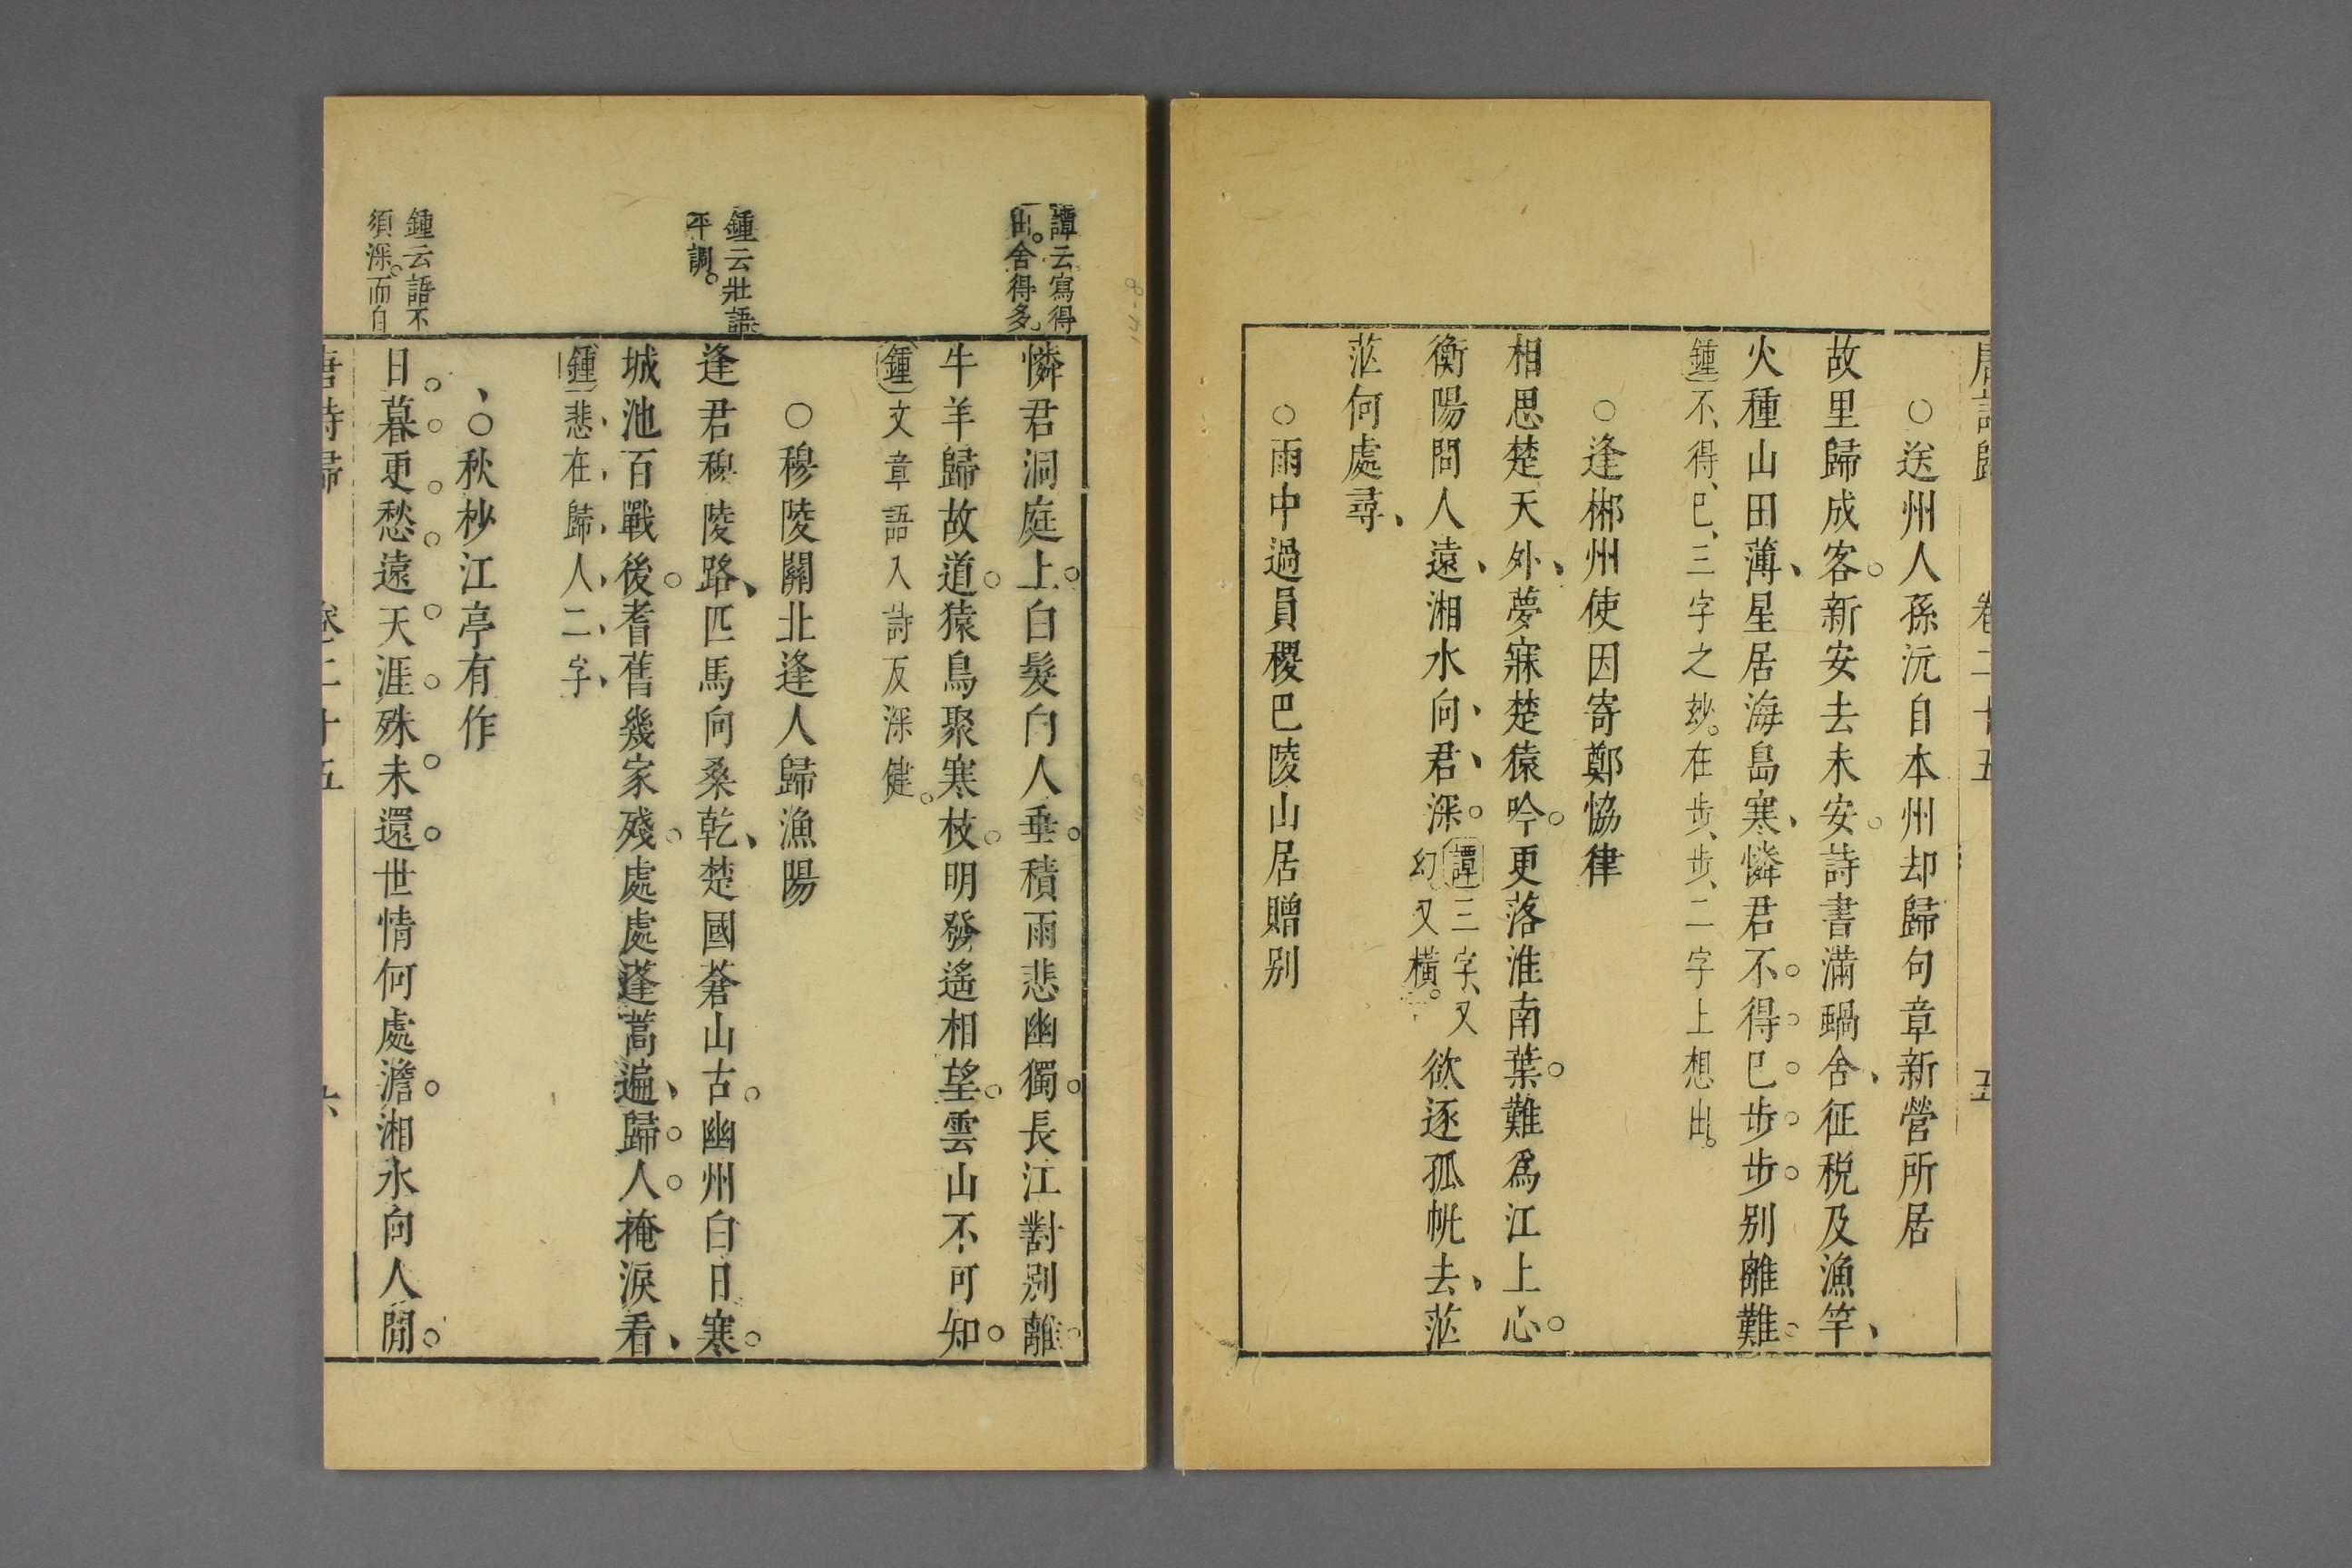 唐詩歸 卷二十五 五
○送州人孫沅自本州却歸句章新營所居
故里歸成客新安去未安詩書滿蝸舍征稅及漁竿
火種山田薄星居海島寒憐君不得已步步別離難
鍾不得已三字之玅在步步二字上想出
○逢郴州使因寄鄭恊律
相思楚天外夢寐楚猿吟更落淮南葉難爲江上心
衡陽問人遠湘水向君深
譚三字又
幻又橫
欲逐孤帆去茫
茫何處尋
○雨中過員稷巴陵山居贈别
譚云寫得
出舍得多
憐君洞庭上白髮向人垂積雨悲幽獨長江對別離
牛羊歸故道猿鳥聚寒枝明發遙相望雲山不可知
鍾文章語入詩反深健
○穆陵關北逢人歸漁陽
鍾云壯語
平調
逢君穆陵路匹馬向桑乾楚國蒼山古幽州白日寒
城池百戰後耆舊幾家殘處處蓬蒿遍歸人掩淚看
鍾悲在歸人二字
○秋杪江亭有作
鍾云語不
須深而自
日暮更愁遠天涯殊未還世情何處澹湘水向人閒
唐詩歸 卷二十五 六